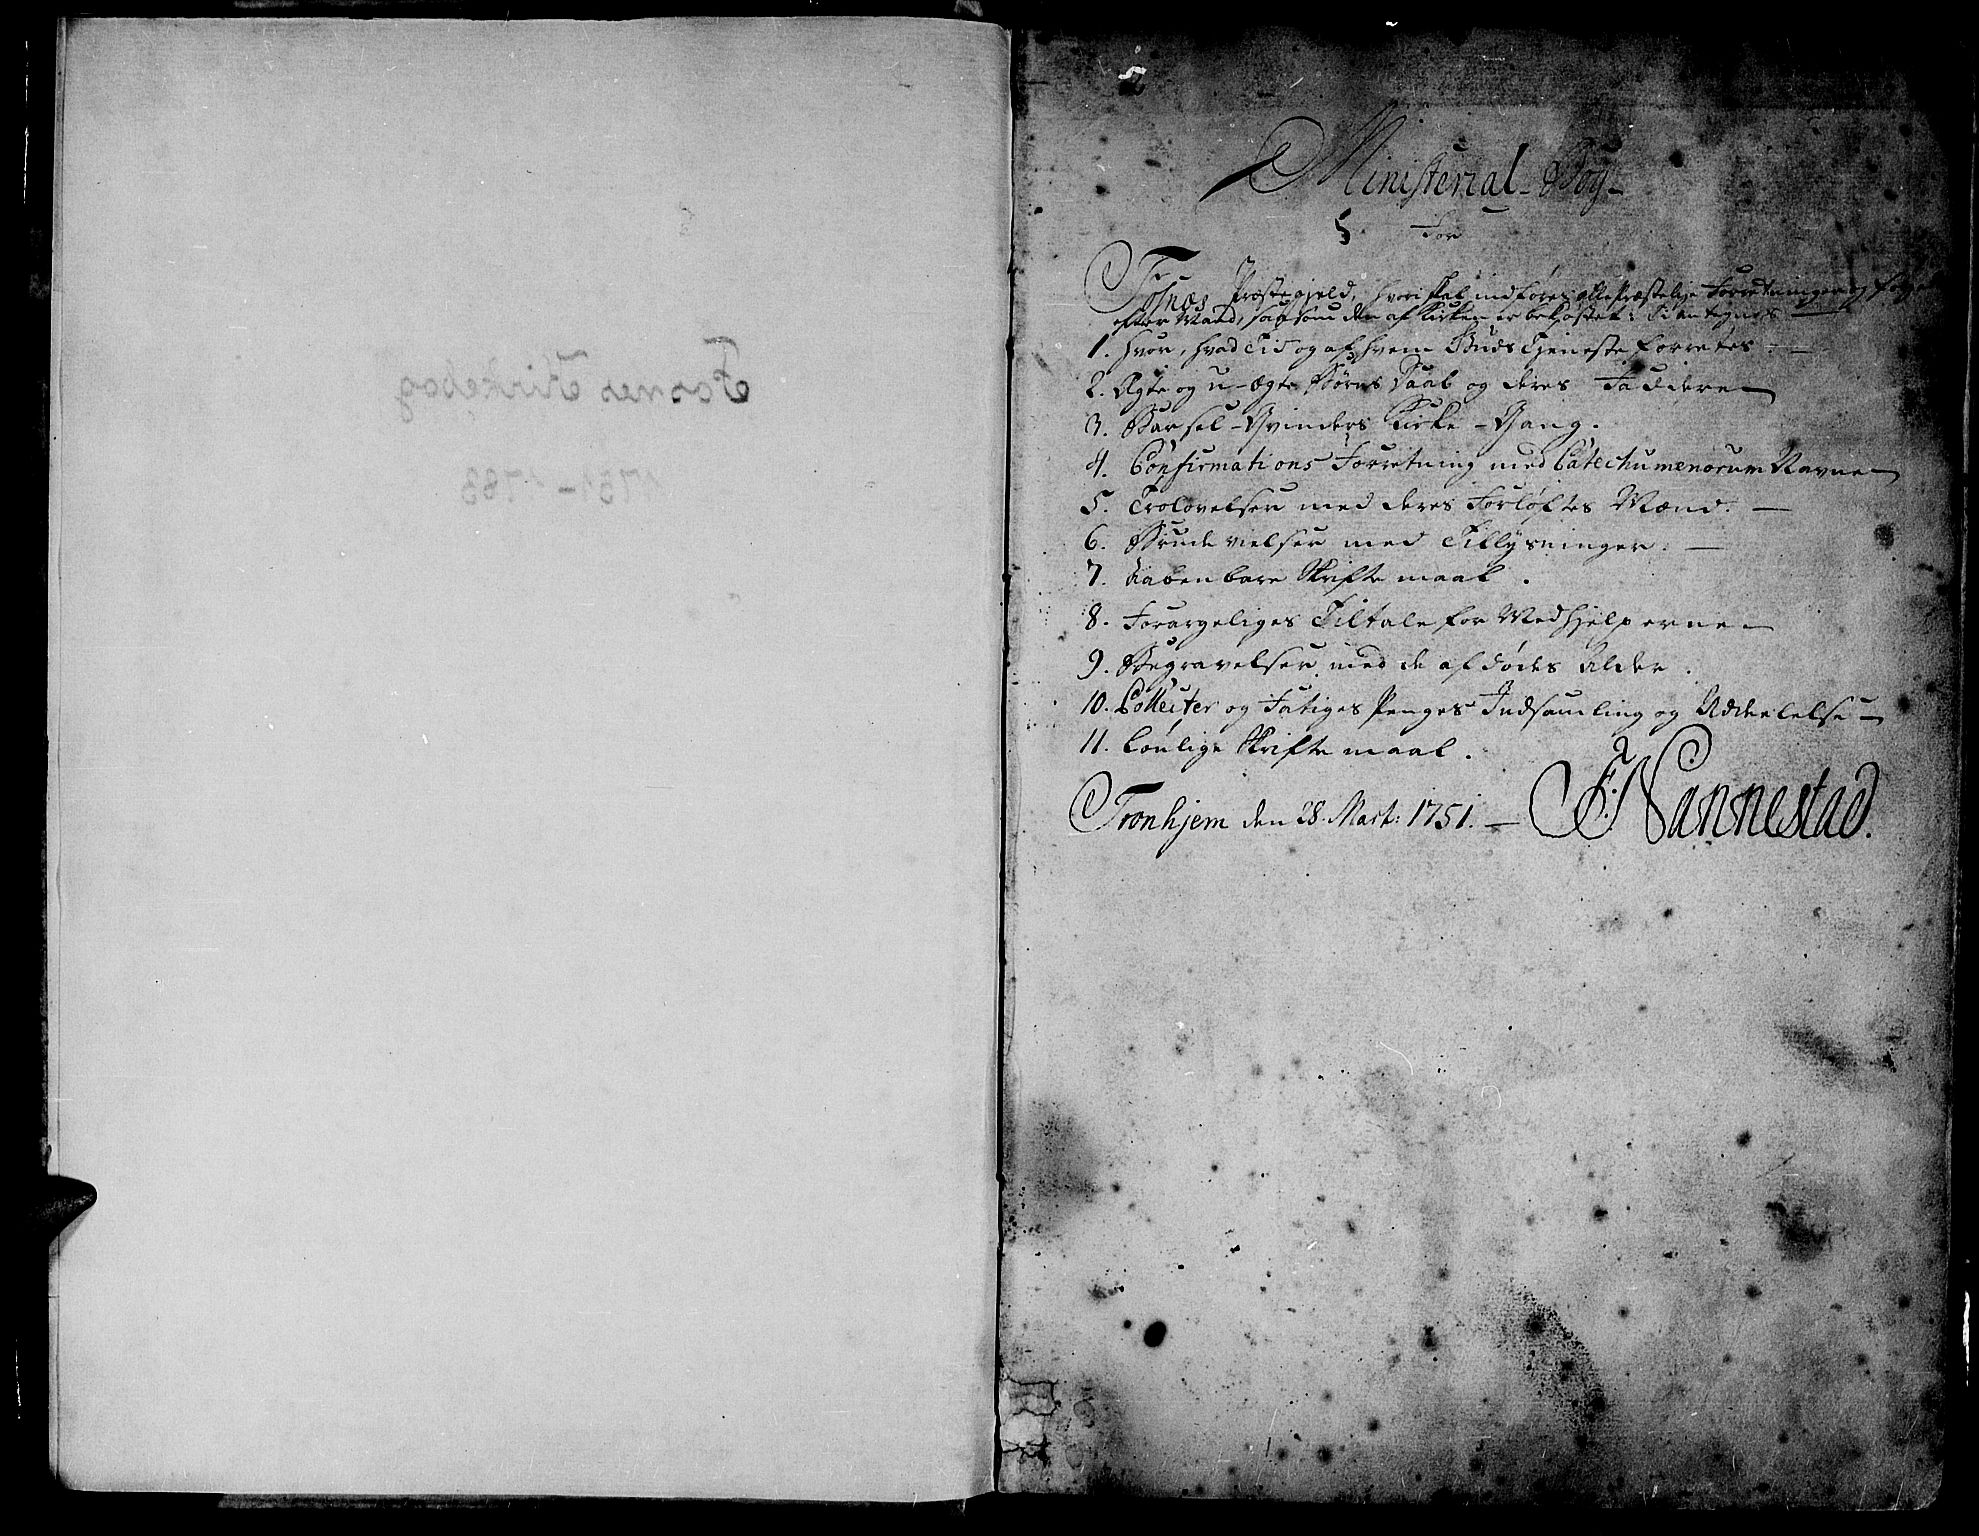 Fosnes Kirkebog
1751-1783
Ministerial-Bog
for
Fosnæs Præstegjeld, hvori skal indføres alle Præstelige Forretninger og
efter saasom den af Kirken er bekostet: antegnes
1. Hvor, hvad Tid og af hvem Guds Tjeneste forrettes.
2. Ægte og u-ægte Børns Daab og deres Faddere
3. Barsel-Qvinders Kirke-Gang.
4. Confirmations Forretning med Catechumenorum Navne
5. Trolovelser med deres Forløftes Mænd.
6. Brudevielser med Tillysninger.
7. Aabenbare Skriftemaal.
8. Forargeliges Tiltale for Medhjelperne
9. Begravelser med de afdødes Alder.
10. Collecter og Fatiges Penges Indsamling og Uddeelelse
11. Lønlige Skriftemaal.
Tronhjem den 28. Mart: 1751. F. Nannestad.